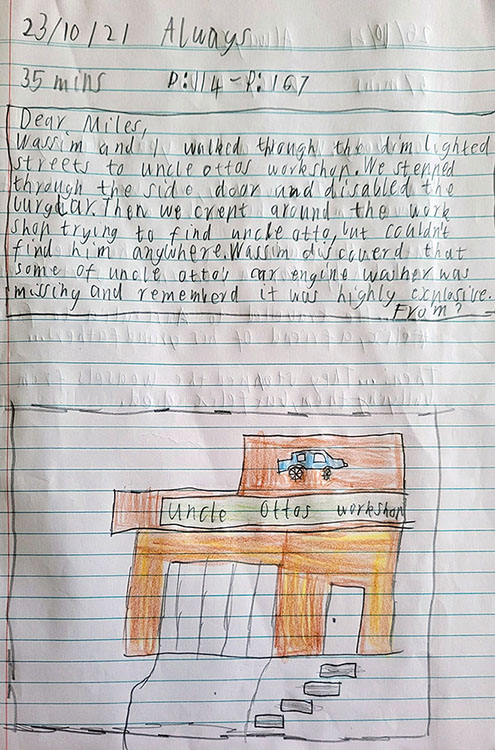 23/10/21 Always
35 mins P:114-P:167
Dear Miles,
Wassim and I walked though the dim lighted
streets to uncle ottos workshop. We stepped
through the side door and disabled the
burglar. Then we crept around the work
shop trying to find uncle otto, but couldn't
find him anywhere. Wassim discoverd that
some of uncle otto's car engine washer was
missing and rememberd it was highly explosive.
From?
Uncle Ottos workshop